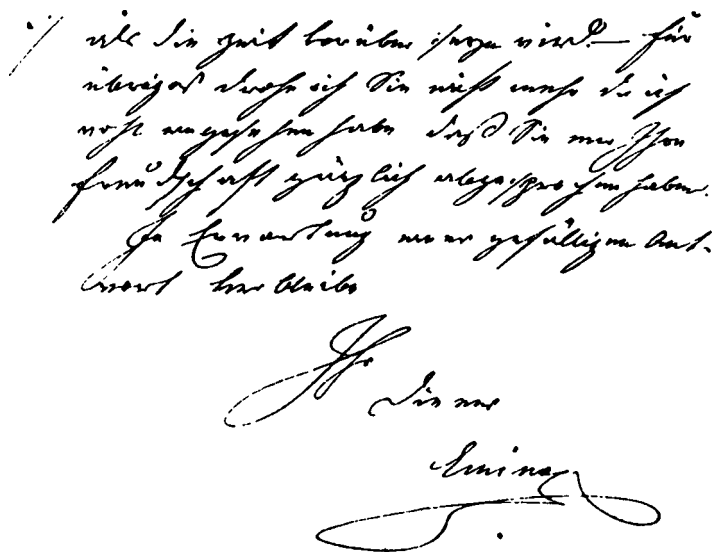 als die Zeit vorüber seyn wird — für
übriges drohe ich Sie nicht mehr da ich
wohl eingesehen habe daß Sie mir Ihre
freundschaft gänzlich abgesprochen haben.
In Erwartung einer gefälligen Ant-
wort verbleibe
Ihr
Diener